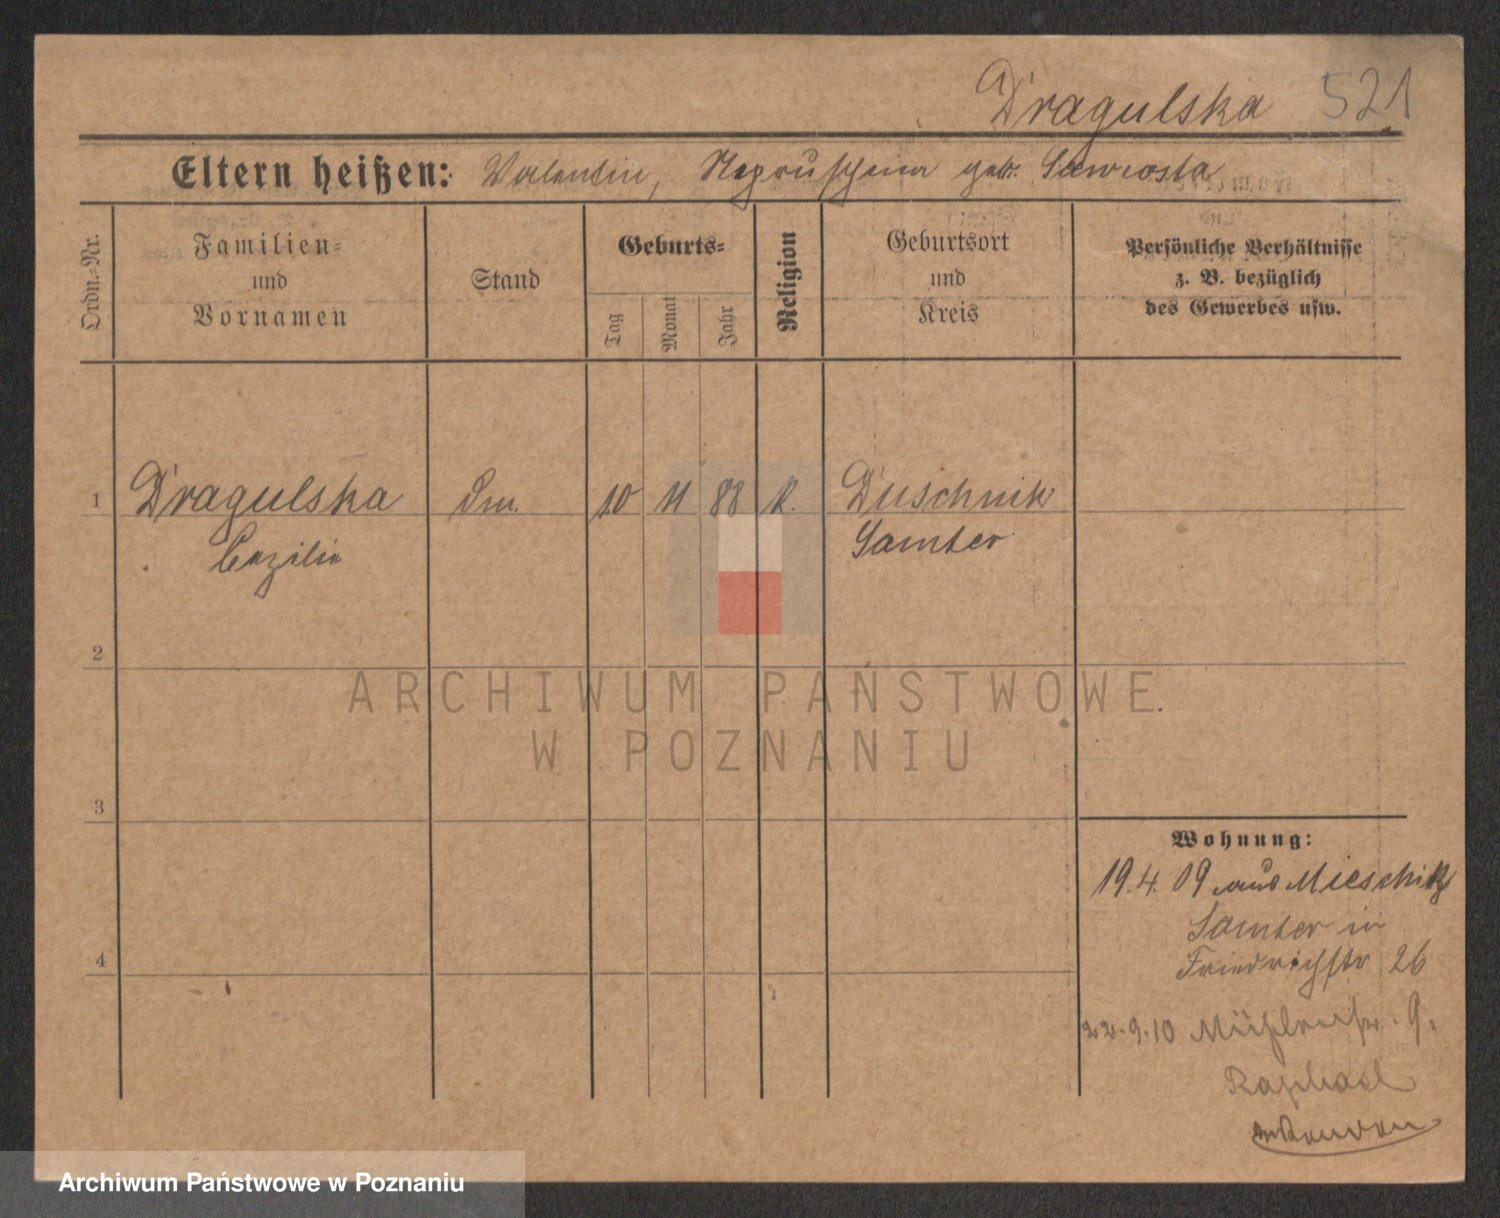 Dragulska 521
Eltern heißen: Valentin, geb. Sawrosta
Ordn.=Nr.
Familien=
und
Vornamen
Stand
Geburts=
Tag
Monat
Jahr
Religion
Geburtsort
und
Kreis
Persönliche Verhältnisse
z. B. bezüglich
des Gewerbes usw.
1 Dragulska 10 11 88 K. Duschnik
Cezilie Samter
2
3
4
Wohnung:
19.4.09 aus
Samter in
Friedrichstr 26
22.9.10 Mühlenstr. 9.
Raphael
ARCHIWUM PAŃSTWOWE
W POZNANIU
Archiwum Państwowe w Poznaniu